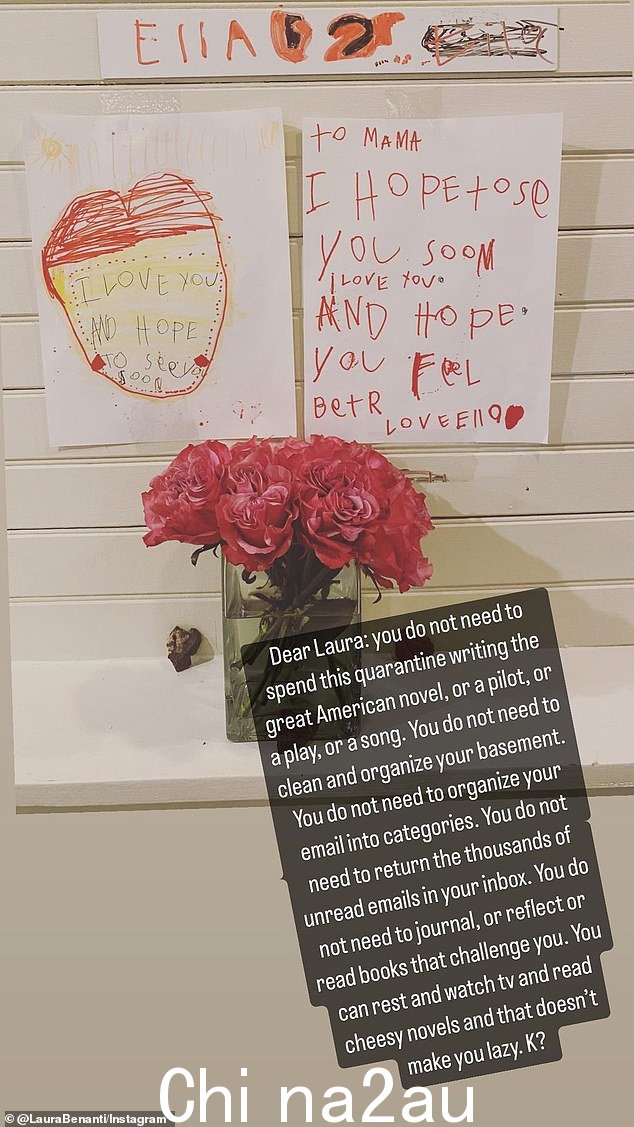 ELLA
I LOVE YOU
AND HOPE
TO SeeYo
SOON
TO MAMA
I HOPE to se
YOU SOON
I LOVE YOU
AND HOPE
YOU FeeL
BetR
LOVE Ella
Dear Laura: you do not need to
spend this quarantine writing the
great American novel, or a pilot, or
a play, or a song. You do not need to
clean and organize your basement.
You do not need to organize your
email into categories. You do not
need to return the thousands of
unread emails in your inbox. You do
not need to journal, or reflect or
read books that challenge you. You
can rest and watch tv and read
cheesy novels and that doesn't
make you lazy. K?
© @LauraBenanti/Instagram
Chi na2au